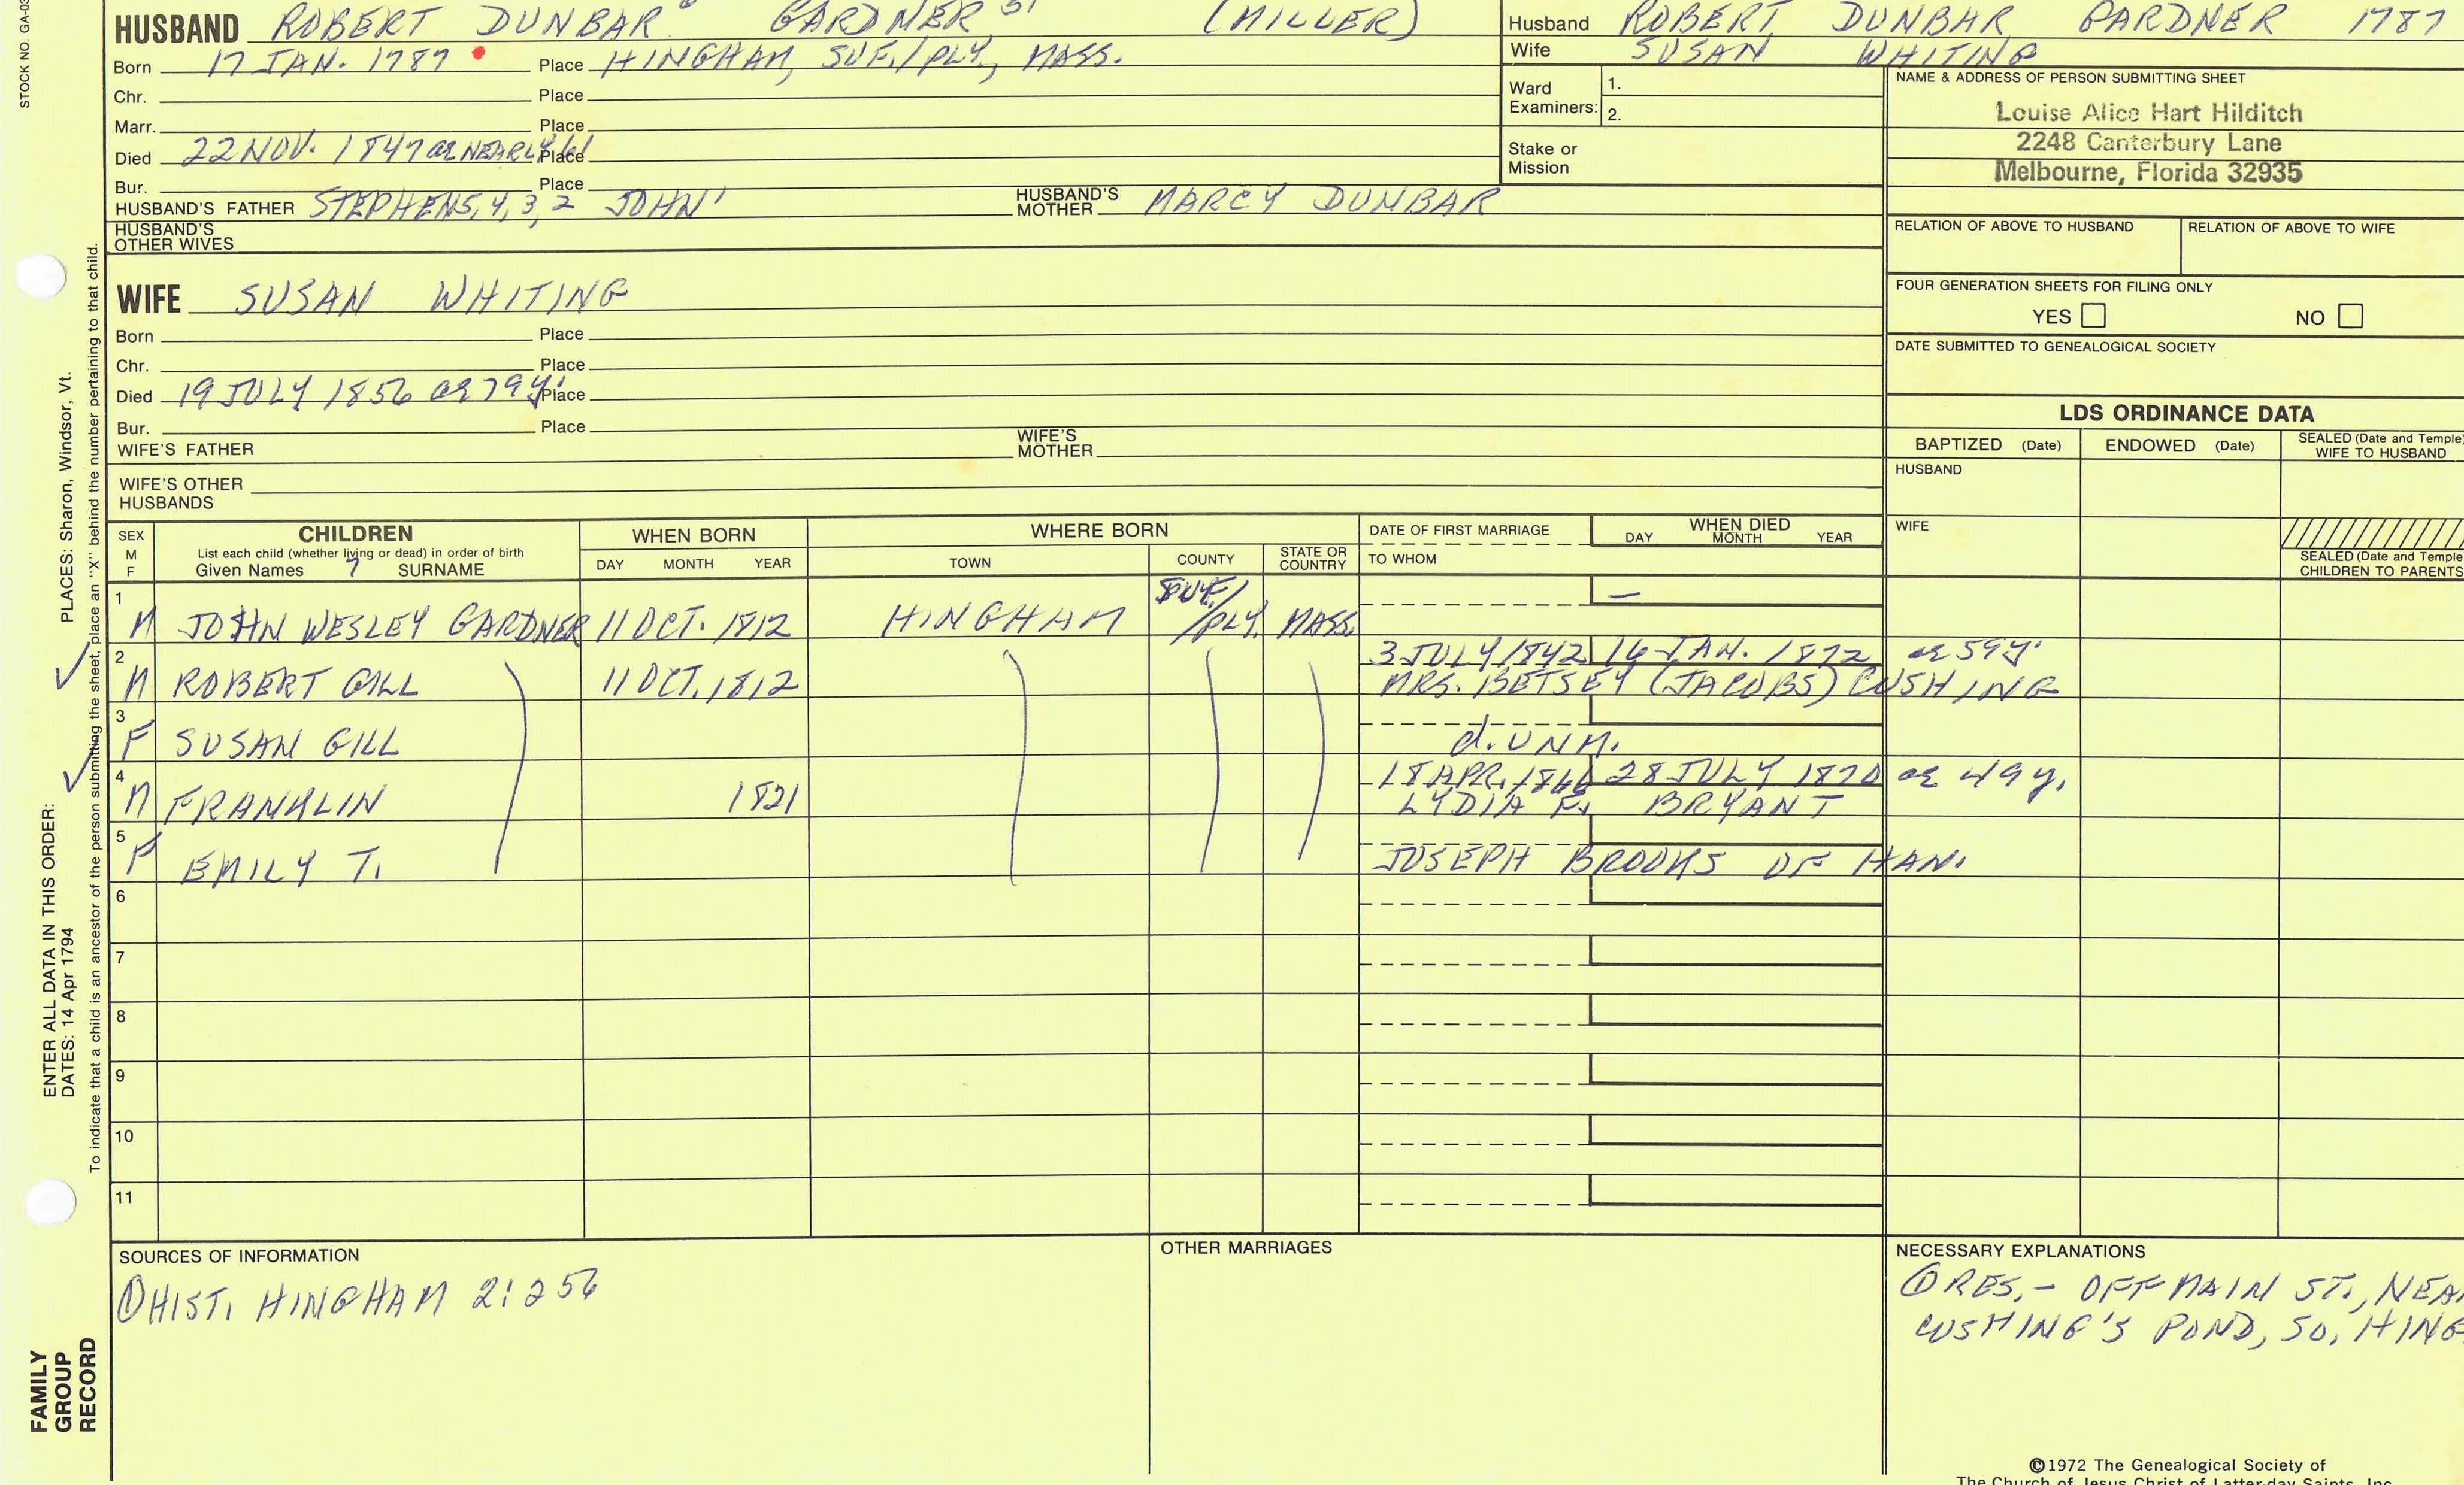 STOCK NO. GA-03
HUSBAND ROBERT DUNBAR 6 GARDNER (MILLER)
Born 17 JAN. 1787 Place HINGHAM, SUF./PLY., MASS.
Chr. Place
Marr. Place
Died 22 NOV. 1847 ae NEARLY 61 Place
Bur. Place
HUSBAND'S FATHER STEPHEN 5, 4, 3, 2 JOHN 1 HUSBAND'S MOTHER MARCY DUNBAR
HUSBAND'S OTHER WIVES
WIFE SUSAN WHITING
Born Place
Chr. Place
Died 19 JULY 1856 ae 79 y. Place
Bur. Place
WIFE'S FATHER WIFE'S MOTHER
WIFE'S OTHER HUSBANDS
Husband ROBERT DUNBAR GARDNER 1787
Wife SUSAN WHITING
Ward Examiners: 1.
2.
Stake or Mission
NAME & ADDRESS OF PERSON SUBMITTING SHEET
Louise Alice Hart Hilditch
2248 Canterbury Lane
Melbourne, Florida 32935
RELATION OF ABOVE TO HUSBAND RELATION OF ABOVE TO WIFE
FOUR GENERATION SHEETS FOR FILING ONLY
YES NO
DATE SUBMITTED TO GENEALOGICAL SOCIETY
LDS ORDINANCE DATA
BAPTIZED (Date) ENDOWED (Date) SEALED (Date and Temple) WIFE TO HUSBAND
HUSBAND
WIFE
SEALED (Date and Temple
CHILDREN TO PARENTS
SEX M F CHILDREN WHEN BORN WHERE BORN DATE OF FIRST MARRIAGE WHEN DIED
List each child (whether living or dead) in order of birth
Given Names 7 SURNAME DAY MONTH YEAR TOWN COUNTY STATE OR COUNTRY TO WHOM DAY MONTH YEAR
1 M JOHN WESLEY GARDNER 11 OCT. 1812 HINGHAM SUF./PLY. MASS. —
2 M ROBERT GILL 11 OCT. 1812 3 JULY 1842 16 JAN. 1872 ae 59 y.
MRS. BETSEY (JACOBS) CUSHING
3 F SUSAN GILL d. UNM.
4 M FRANKLIN 1821 18 APR. 1846 28 JULY 1870 ae 49 y.
LYDIA F. BRYANT
5 F EMILY T. JOSEPH BROOKS OF HAN.
6
7
8
9
10
11
SOURCES OF INFORMATION
① HIST. HINGHAM 2:256
OTHER MARRIAGES
NECESSARY EXPLANATIONS
① RES. - OFF MAIN ST., NEA
CUSHING'S POND, SO. HING
©1972 The Genealogical Society of
The Church of Jesus Christ of Latter-day Saints, Inc.
PLACES: Sharon, Windsor, Vt.
ENTER ALL DATA IN THIS ORDER:
DATES: 14 Apr 1794
To indicate that a child is an ancestor of the person submitting the sheet, place an "X" behind the number pertaining to that child.
FAMILY
GROUP
RECORD